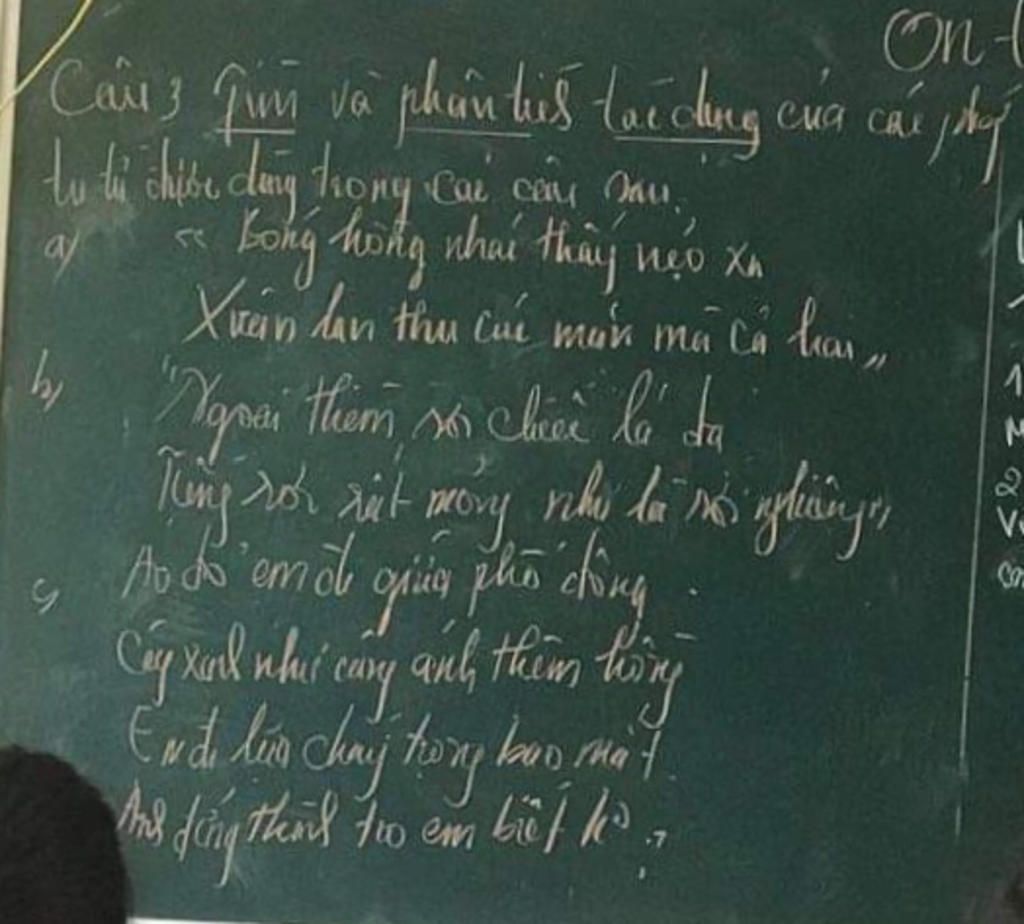 Ôn t
Câu 3 Tìm và phân tích tác dụng của các phép
tu từ được dùng trong các câu sau.
a) "Bóng hồng nhác thấy nẻo xa
Xuân lan thu cúc mặn mà cả hai"
b) "Ngoài thềm rơi chiếc lá đa
Tiếng rơi rất mỏng như là rơi nghiêng"
c) Áo đỏ em đi giữa phố đông
Cây xanh như cũng ánh thêm hồng
Em đi lửa cháy trong bao mắt
Anh đứng thành tro em biết ko?
1
2